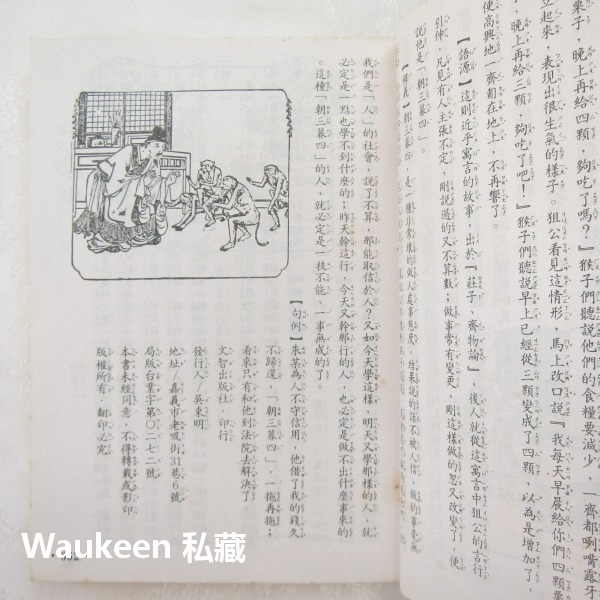 栗子，晚上再給四顆，夠吃了嗎？』猴子們聽說他們的食糧要減少，一齊都咧嘴露牙
立起來，表現出很生氣的樣子。狙公看見這情形，馬上改口說『我每天早晨給你們四顆栗
子，晚上再給三顆，夠吃了吧！』猴子們聽說早上已經從三顆變成了四顆，以為是增加了，
便高興地一齊匍在地上，不再響了。
【語源】這則近乎寓言的故事，出於『莊子、齊物論』，後人就從這寓言中狙公的言行
引伸，凡見有人主張不定，剛說過的又不算數；做事常有變更，剛這樣做的忽又改變了，便
說他是「朝三暮四」。
【釋義】「朝三暮四」，是一種非常壞的做人處事態度，結果說的話不被人信，做的事毫無
我們是「人」的社會，說了不算，那能取信於人？又如今天學這樣，明天又學那樣的人，就
必定是一點也學不到什麼的；昨天幹這行，今天又幹那行的人，也必定是做不出什麼事來的
。這種「朝三暮四」的人，就必定是一技不能、一事無成的了。
【句例】朱某為人不守信用，他借了我的錢久
不歸還，「朝三暮四」，一拖再拖；
看來只有和他到法院去解決了。
文智出版社·印行
發行人／吳東明
地址／嘉義市老吸街31巷6號
局版台業字第０二七二號
本書未經同意，不得轉載或影印
版權所有·翻印必究
Waukeen 私藏